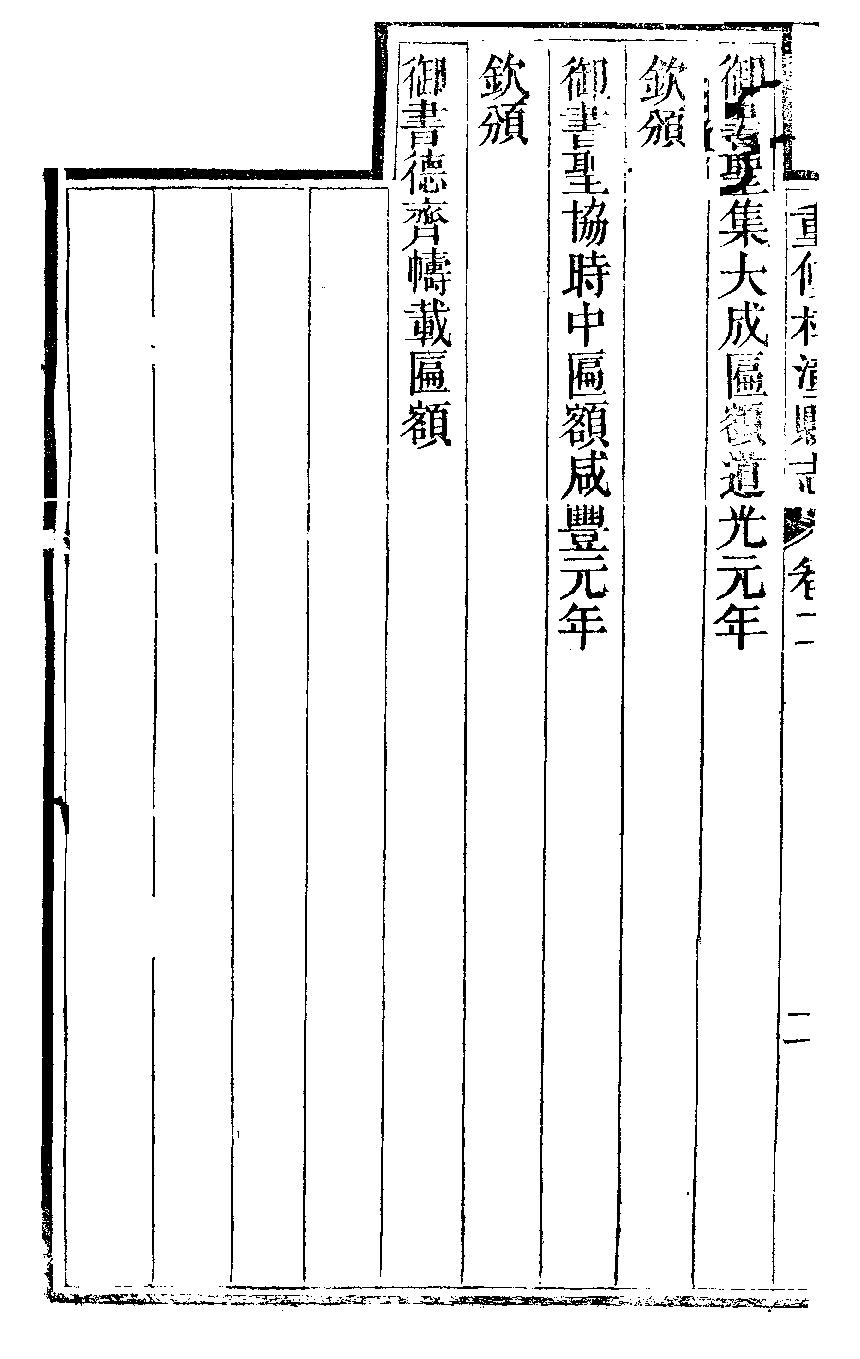 重修梓潼縣志 卷二 二
御書聖集大成匾額道光元年
欽頒
御書聖協時中匾額咸豐元年
欽頒
御書德齊幬載匾額